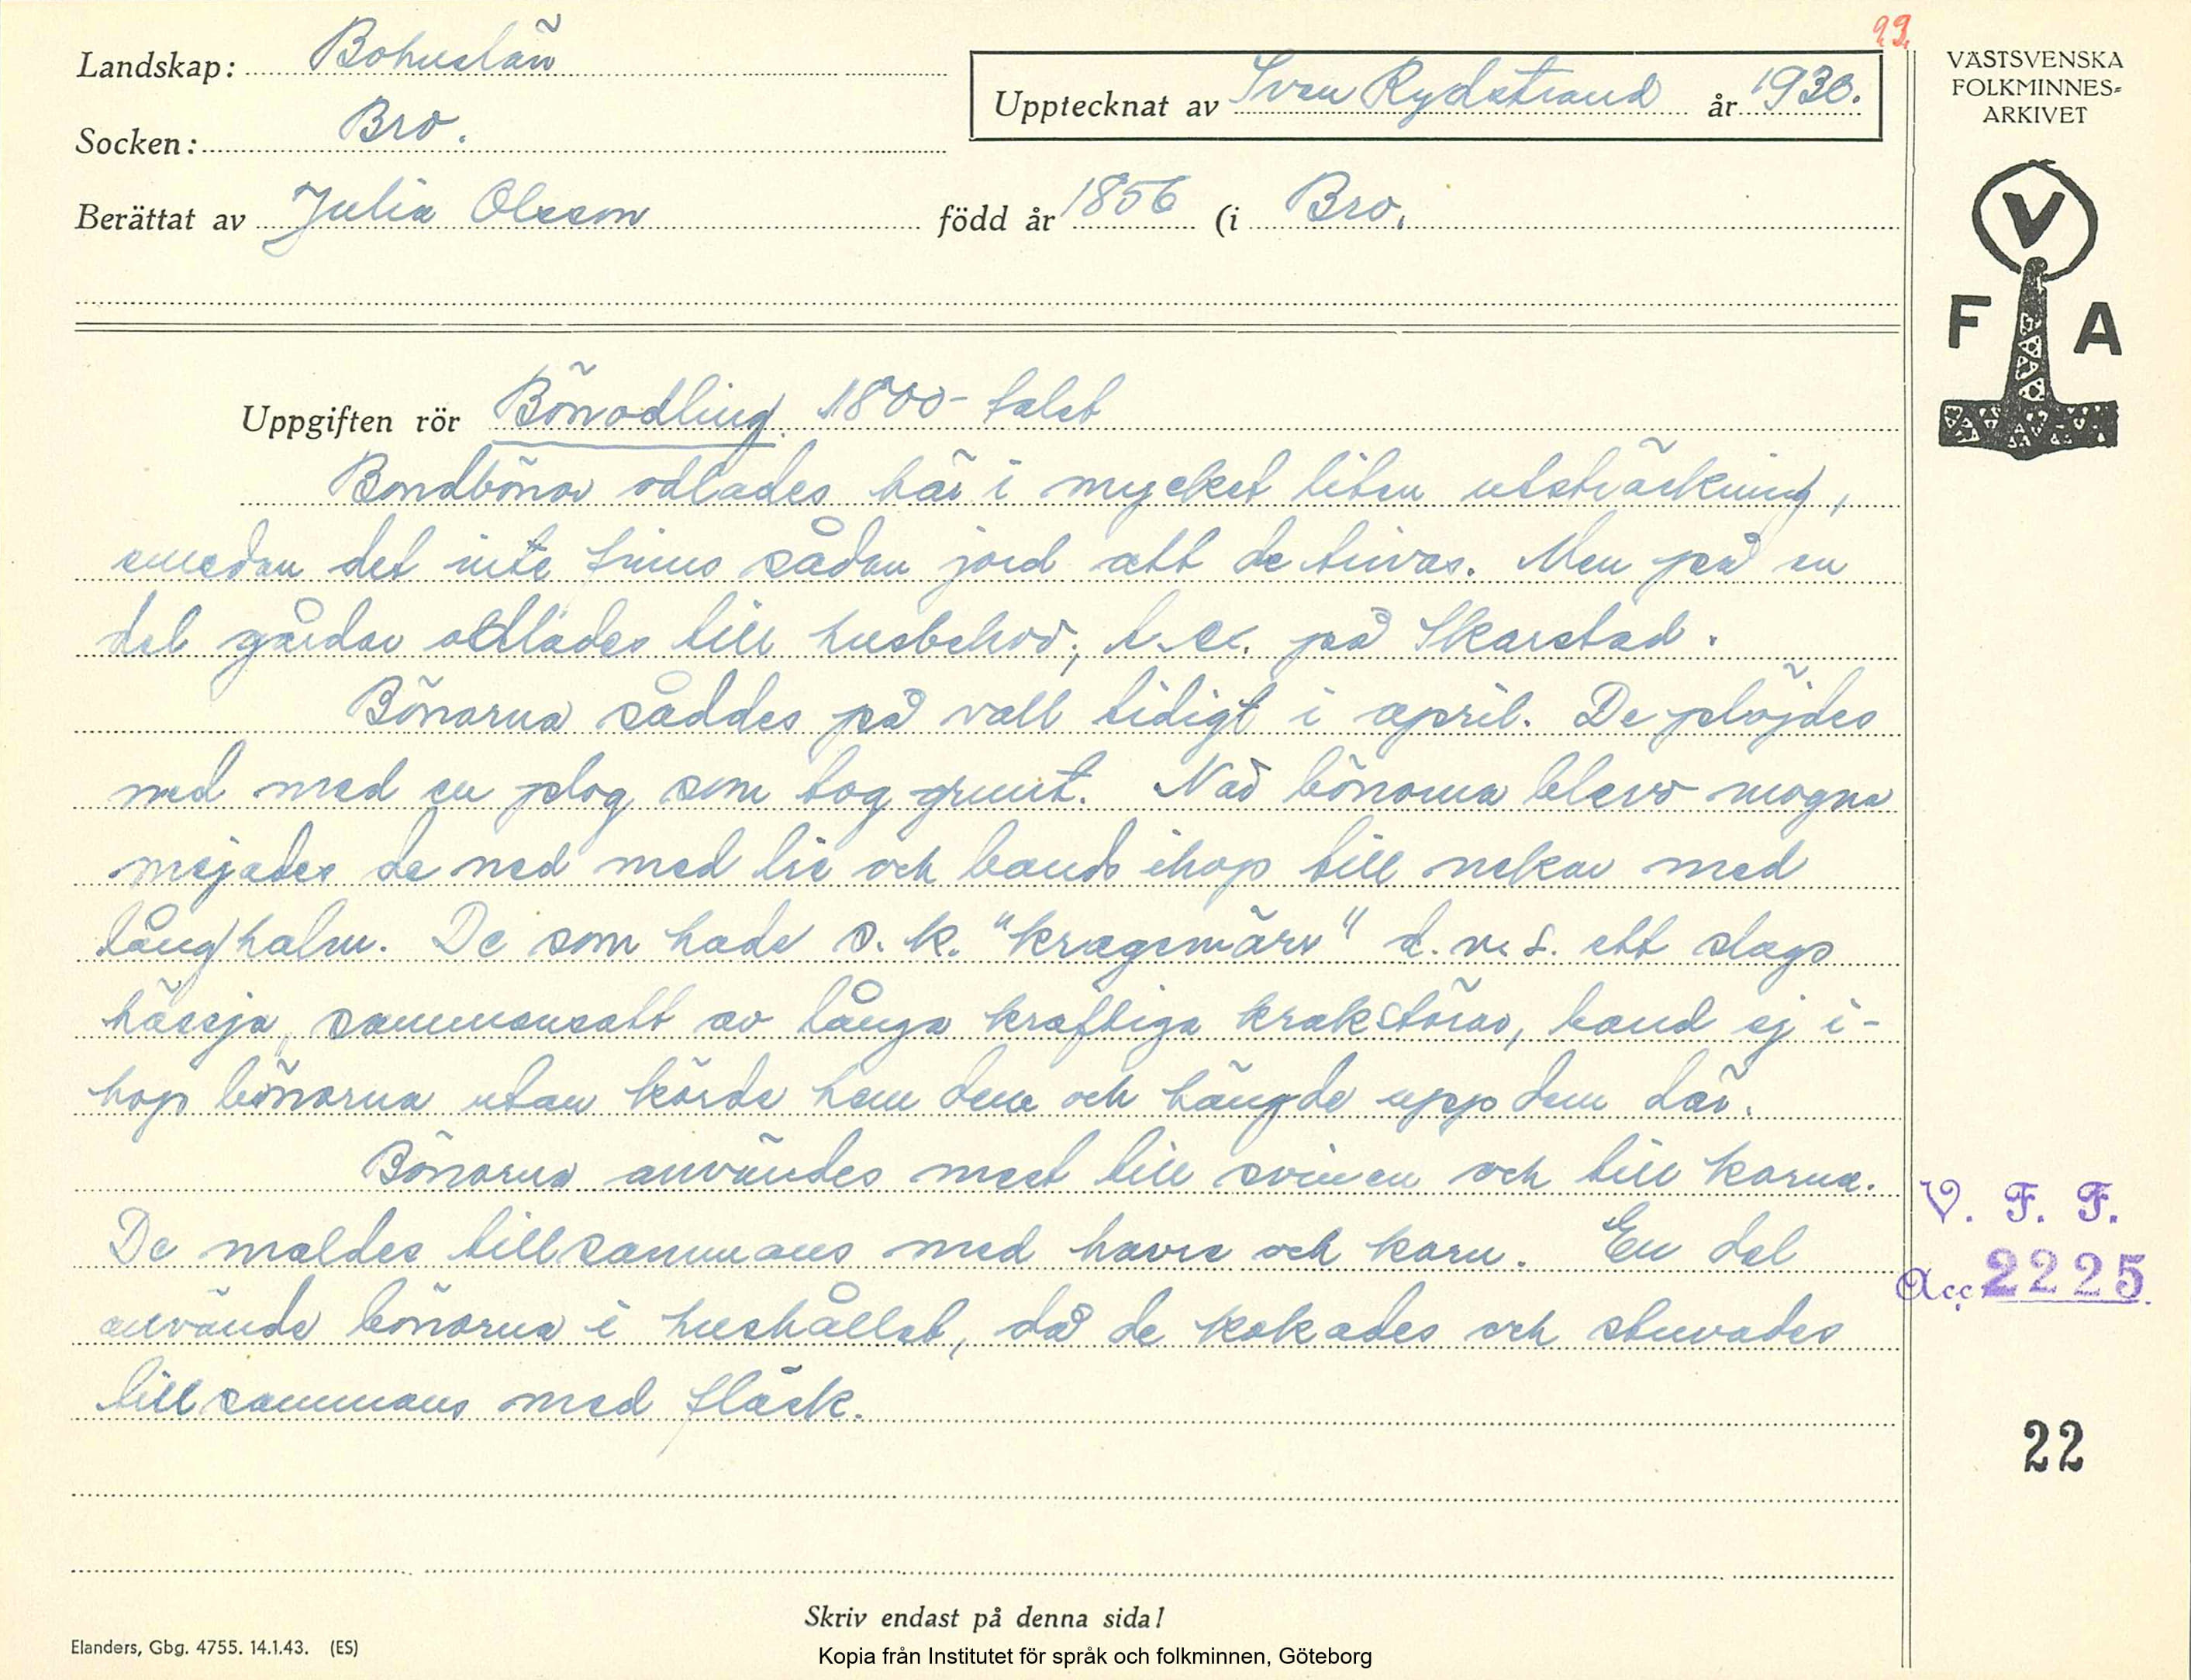 22.
Landskap: Bohuslän
Upptecknat av Sven Rydstrand år 1930.
Socken: Bro.
Berättat av Julia Olsson född år 1856 (i Bro.
VÄSTSVENSKA
FOLKMINNES-
ARKIVET
V
F A
Uppgiften rör Bönodling. 1800-talet
Bondbönor odlades här i mycket liten utsträckning,
emedan det inte finns sådan jord att de trivas. Men på en
del gårdar odlades till husbehov, t.ex. på Skarstad.
Bönorna såddes på vall tidigt i april. De plöjdes
ned med en plog som tog grunt. När bönorna blevo mogna
mejades de ned med lie och bands ihop till nekar med
långhalm. De som hade s.k. "kragemärr" d.v.s. ett slags
hässja, sammansatt av långa kraftiga krakstörar, band ej i-
hop bönorna utan körde hem dem och hängde upp dem där.
Bönorna användes mest till svinen och till korna.
De maldes tillsammans med havre och korn. En del
använde bönorna i hushållet, då de kokades och stuvades
tillsammans med fläsk.
V. F. F.
Acc. 2225
22
Skriv endast på denna sida!
Elanders, Gbg. 4755. 14.1.43. (ES)
Kopia från Institutet för språk och folkminnen, Göteborg